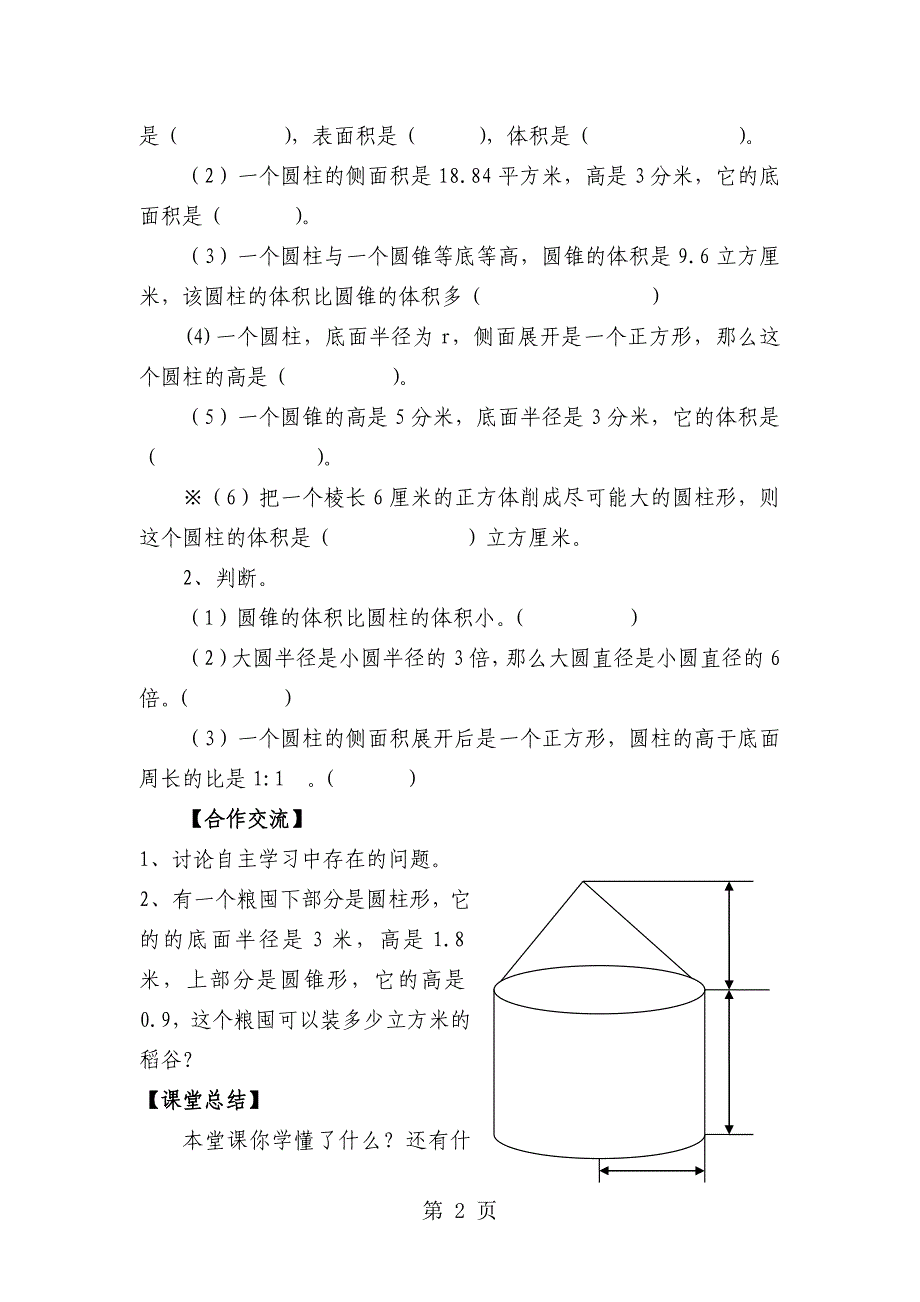 是（　　　　），表面积是（　　　），体积是（　　　　　　）。
（2）一个圆柱的侧面积是18.84平方米，高是3分米，它的底
面积是（　　　）。
（3）一个圆柱与一个圆锥等底等高，圆锥的体积是9.6立方厘
米，该圆柱的体积比圆锥的体积多（　　　　　　　）
(4)一个圆柱，底面半径为r，侧面展开是一个正方形，那么这
个圆柱的高是（　　　　）。
（5）一个圆锥的高是5分米，底面半径是3分米，它的体积是
（　　　　　　　）。
※（6）把一个棱长6厘米的正方体削成尽可能大的圆柱形，则
这个圆柱的体积是（　　　　　　）立方厘米。
2、判断。
（1）圆锥的体积比圆柱的体积小。（　　　　　）
（2）大圆半径是小圆半径的3倍，那么大圆直径是小圆直径的6
倍。（　　　　）
（3）一个圆柱的侧面积展开后是一个正方形，圆柱的高于底面
周长的比是1:1　。（　　　）
【合作交流】
1、讨论自主学习中存在的问题。
2、有一个粮囤下部分是圆柱形，它
的的底面半径是3米，高是1.8
米，上部分是圆锥形，它的高是
0.9，这个粮囤可以装多少立方米的
稻谷？
【课堂总结】
本堂课你学懂了什么？还有什
第 2 页